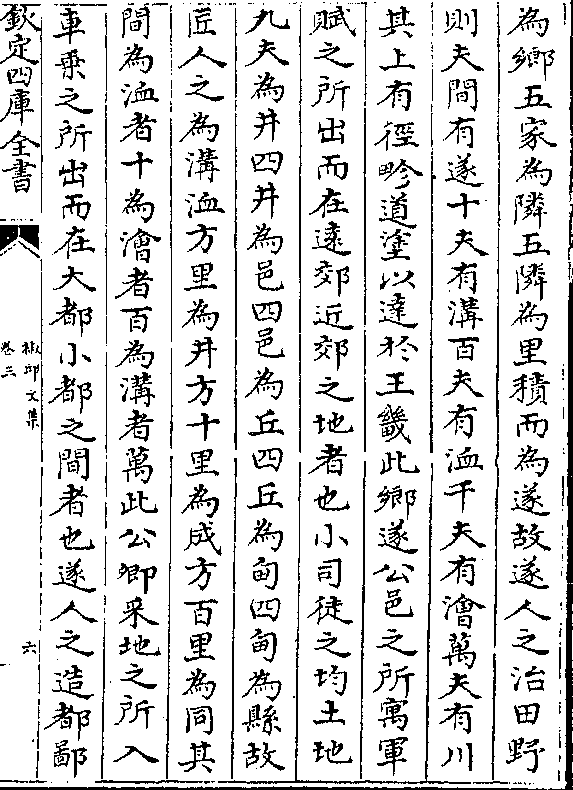 為鄉五家為隣五隣為里積而為遂故遂人之治田野
則夫間有遂十夫有溝百夫有洫千夫有澮萬夫有川
其上有徑畛道塗以達於王畿此鄉遂公邑之所寓軍
賦之所出而在遠郊近郊之地者也小司徒之均土地
九夫為井四井為邑四邑為丘四丘為甸四甸為縣故
匠人之為溝洫方里為井方十里為成方百里為同其
間為洫者十為澮者百為溝者萬此公卿采地之所入
車乗之所出而在大都小都之間者也遂人之造都鄙
欽定四庫全書
椒邱文集
卷三
六